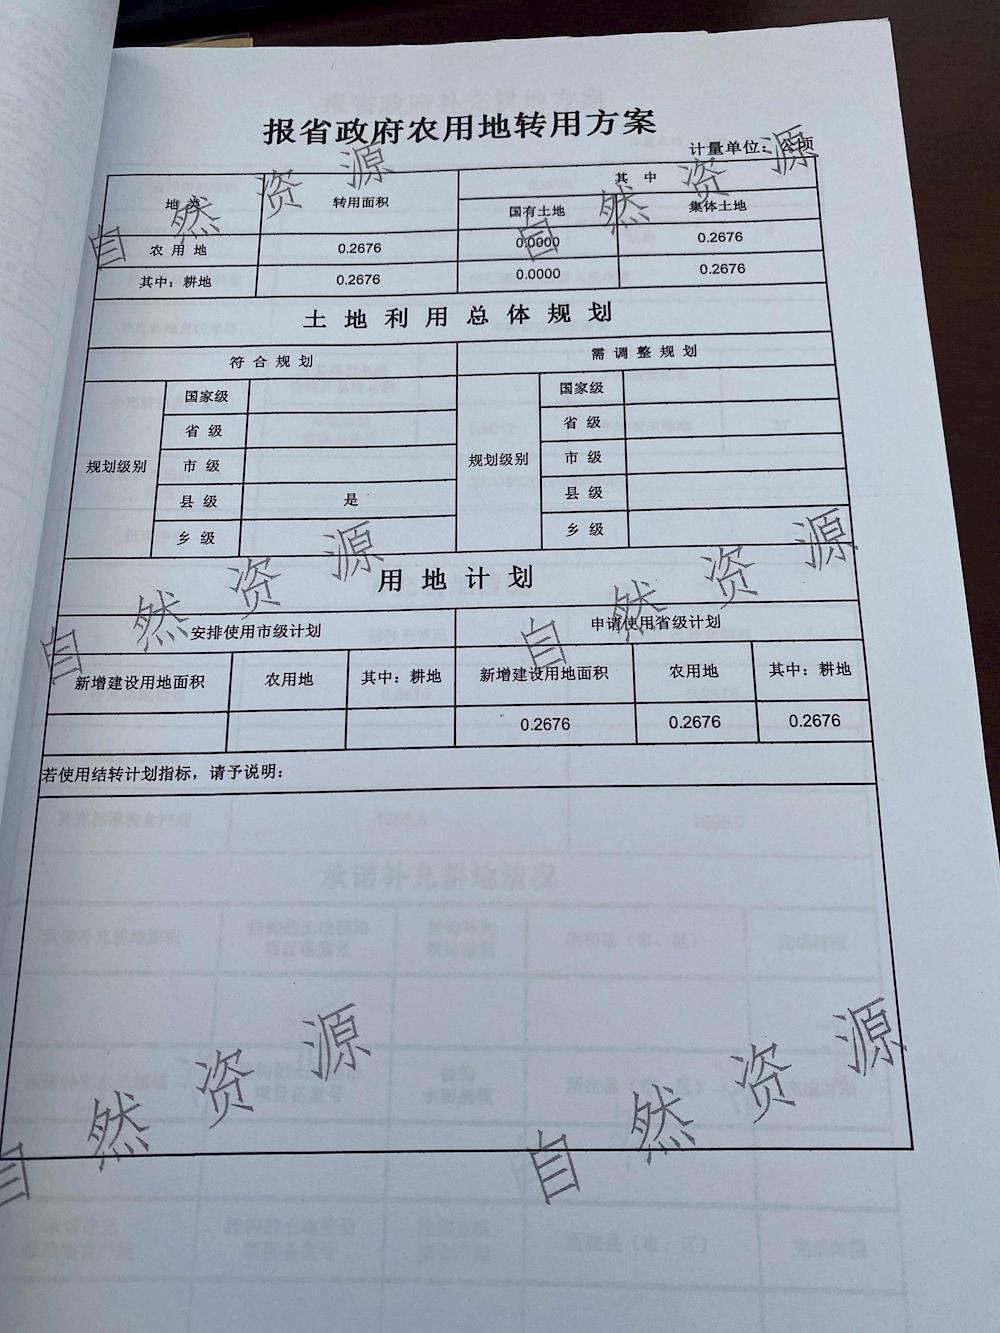 报省政府农用地转用方案
计量单位：公顷
地 类 转用面积 其 中
国有土地 集体土地
农 用 地 0.2676 0.0000 0.2676
其中：耕地 0.2676 0.0000 0.2676
土 地 利 用 总 体 规 划
符 合 规 划 需 调 整 规 划
规划级别 国家级 规划级别 国家级
省 级 省 级
市 级 市 级
县 级 是 县 级
乡 级 乡 级
用 地 计 划
安排使用市级计划 申请使用省级计划
新增建设用地面积 农用地 其中：耕地 新增建设用地面积 农用地 其中：耕地
0.2676 0.2676 0.2676
若使用结转计划指标，请予说明：
自然资源 自然资源
自然资源 自然资源
自然资源 自然资源